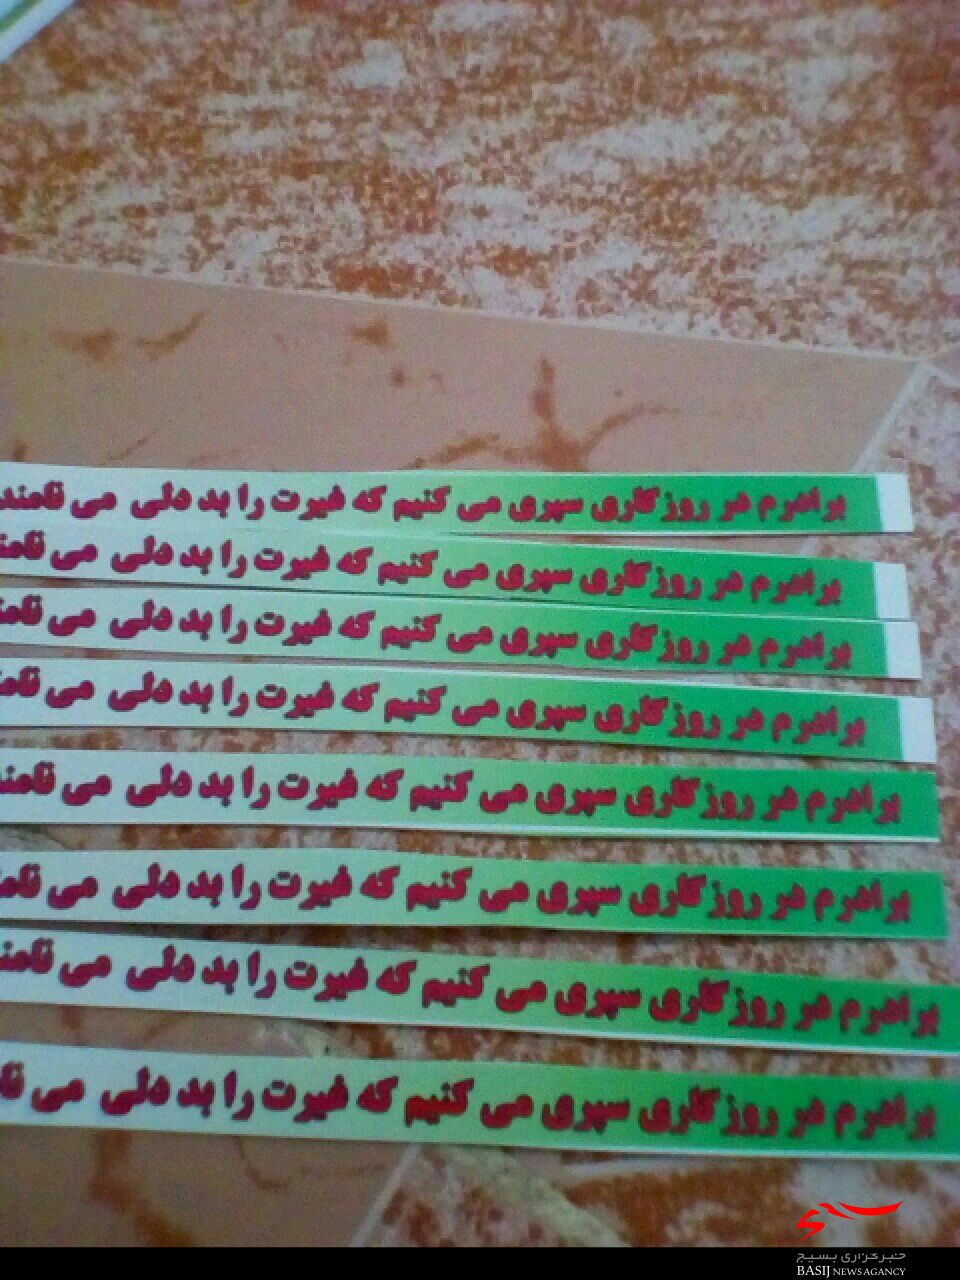 برادرم در روزگاری سپری می کنیم که غیرت را بد دلی می نامند
برادرم در روزگاری سپری می کنیم که غیرت را بد دلی می
برادرم در روزگاری سپری می کنیم که غیرت را بد دلی می
برادرم در روزگاری سپری می کنیم که غیرت را بد دلی می
برادرم در روزگاری سپری می کنیم که غیرت را بد دلی می نامند
برادرم در روزگاری سپری می کنیم که غیرت را بد دلی می
برادرم در روزگاری سپری می کنیم که غیرت را بد دلی می
برادرم در روزگاری سپری می کنیم که غیرت را بد دلی می
خبرگزاری بسیج
BASIJ NEWS AGANCY